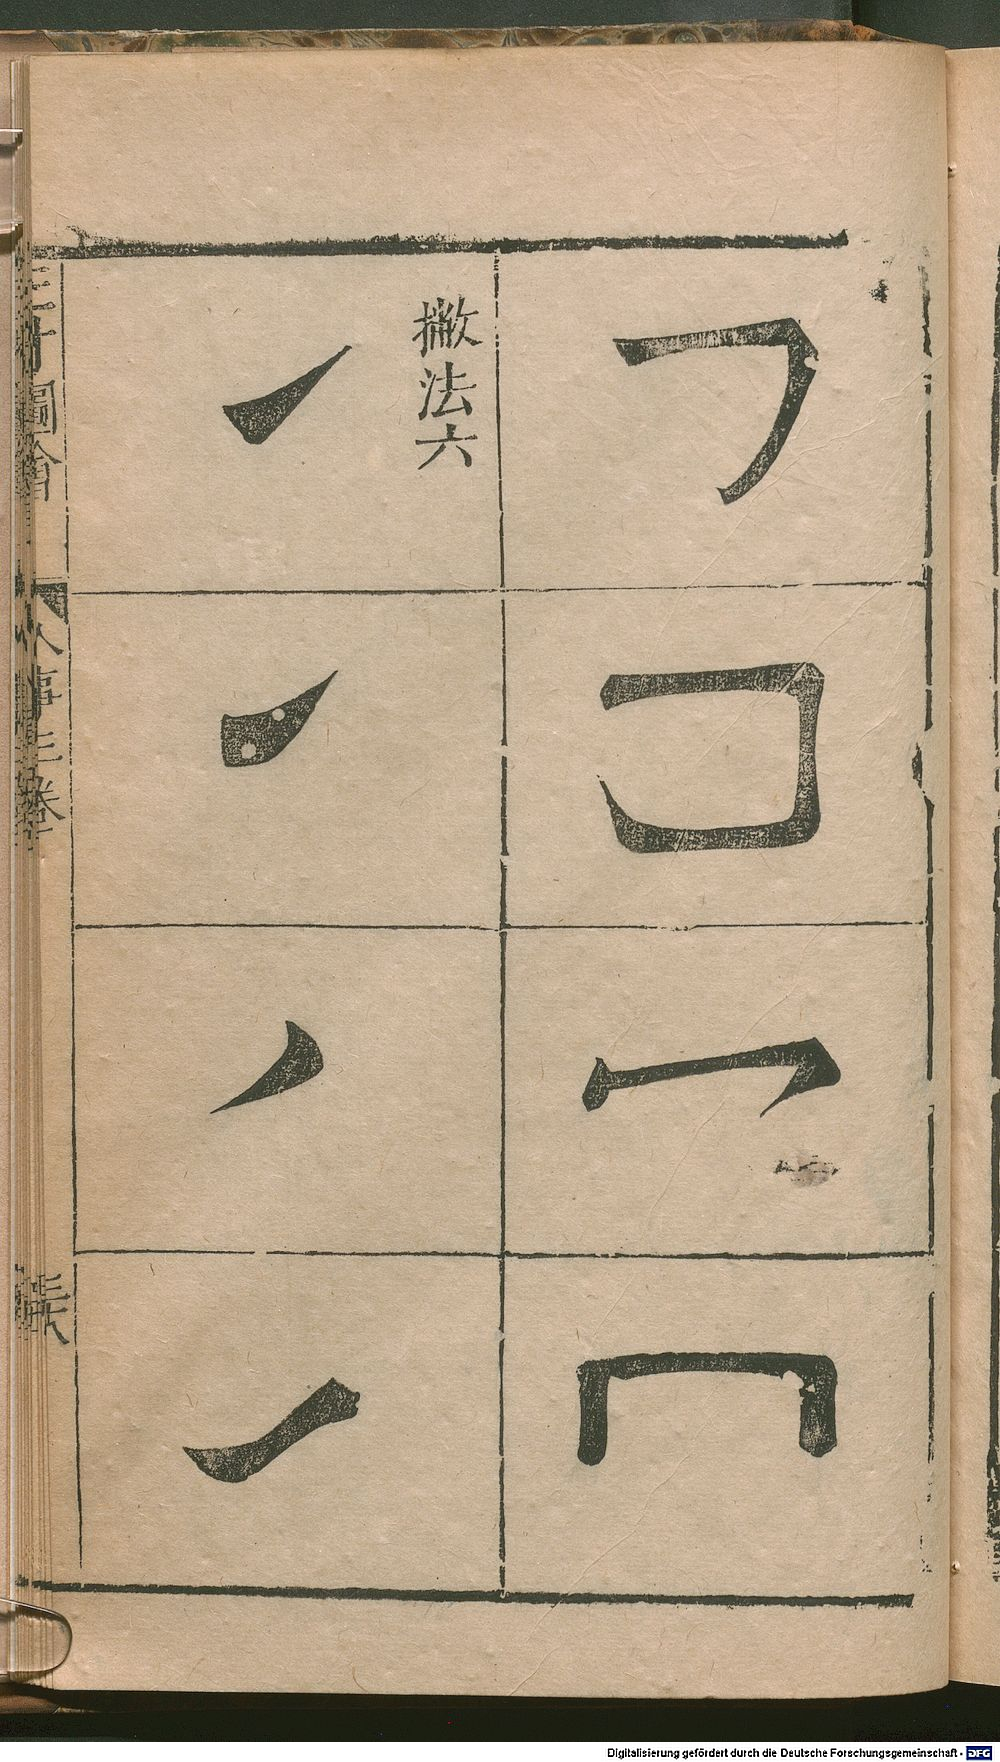 撇法六
三才圖會
人事三卷
三八
Digitalisierung gefördert durch die Deutsche Forschungsgemeinschaft - DFG